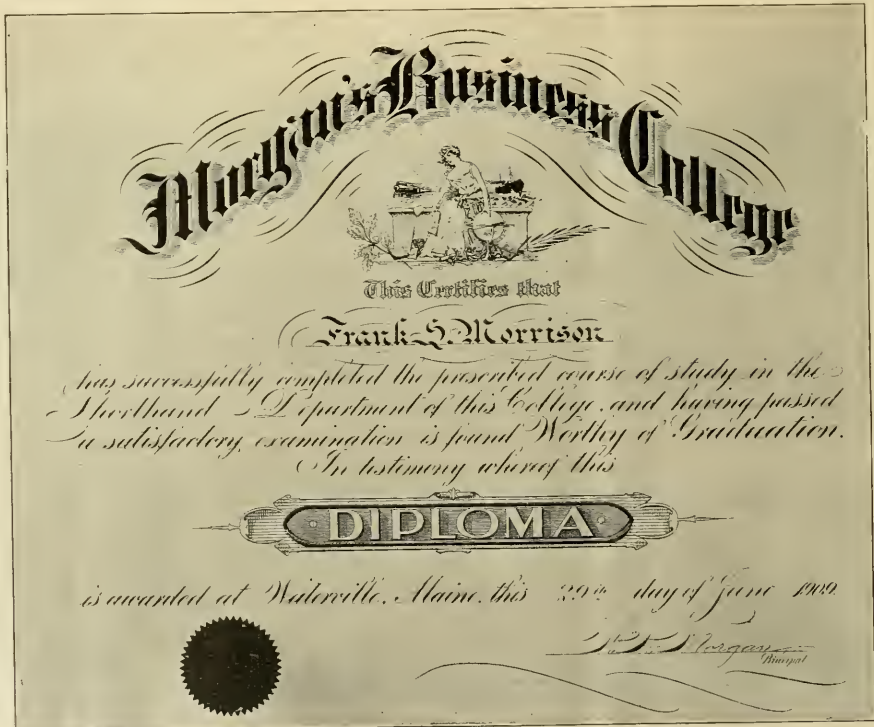 Morgan's Business College
This Certifies that
Frank S. Morrison
has successfully completed the prescribed course of study in the
Shorthand Department of this College, and having passed
a satisfactory examination is found Worthy of Graduation.
In testimony whereof this
DIPLOMA
is awarded at Waterville, Maine, this 29th day of June 1909.
Morgan
Principal